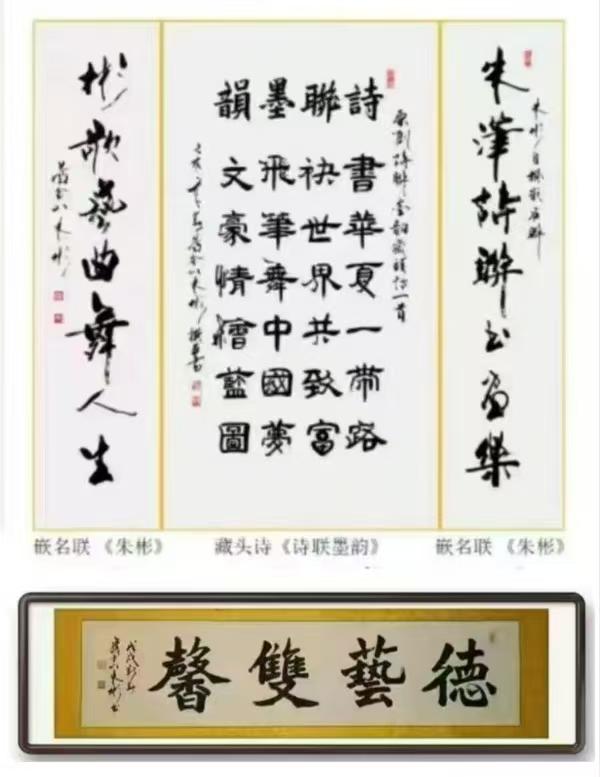 朱 辞聯书画樂
朱彬自撰嵌名联
原創詩聯墨韻藏頭詩一首
詩書華夏一帶路
聯袂世界共致富
墨飛筆舞中國夢
韻文豪情繪藍圖
彬歌藝曲舞人生
朱彬
嵌名联 《朱彬》
藏头诗《诗联墨韵》
嵌名联 《朱彬》
德藝雙馨